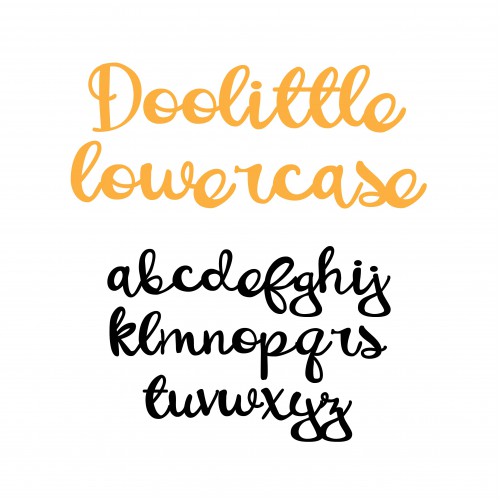 Doolittle
lowercase
abcdefghij
klmnopqrs
tuvwxyz